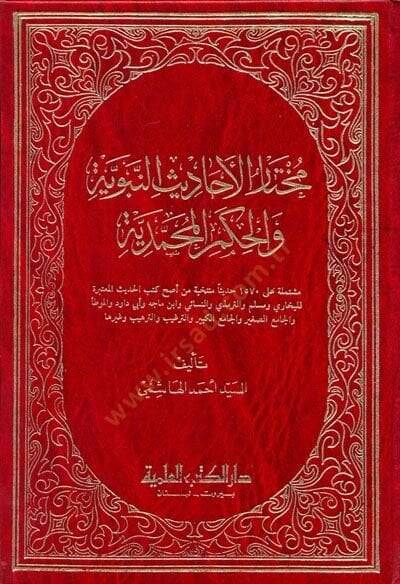 مختار الأحاديث النبوية
والحكم المحمدية
مشتملة على ١٥٧٠ حديثا منتخبة من أصح كتب الحديث المعتبرة
للبخاري ومسلم والترمذي والنسائي وابن ماجه وأبي داود والموطأ
والجامع الصغير والجامع الكبير والترغيب والترهيب وغيرها
تأليف
السيد أحمد الهاشمي
دار الكتب العلمية
بيروت ـ لبنان